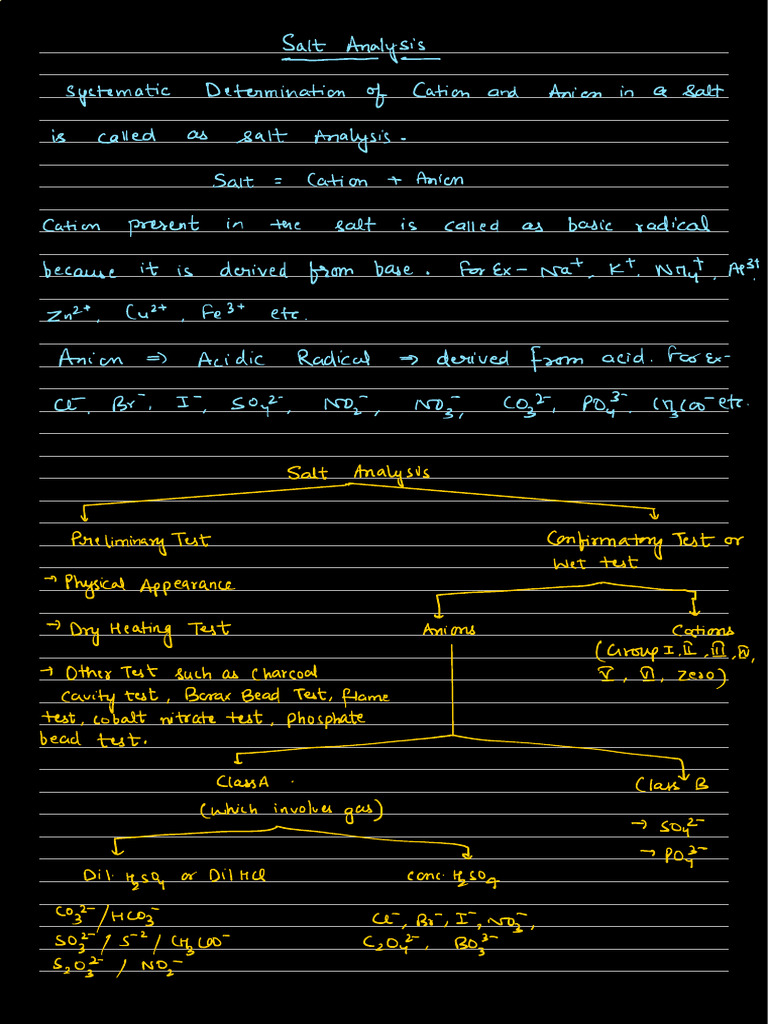 Salt Analysis
Systematic Determination of Cation and Anion in a Salt
is called as salt Analysis.
Salt = Cation + Anion
Cation present in the salt is called as basic radical
because it is derived from base. For Ex- Na⁺, K⁺, NH₄⁺, Al³⁺,
Zn²⁺, Cu²⁺, Fe³⁺ etc.
Anion ⇒ Acidic Radical ⇒ derived from acid. For Ex-
Cl⁻, Br⁻, I⁻, SO₄²⁻, NO₂⁻, NO₃⁻, CO₃²⁻, PO₄³⁻, CH₃COO⁻ etc.
Salt Analysis
Preliminary Test
→ Physical Appearance
→ Dry Heating Test
→ Other Test such as Charcoal
cavity test, Borax Bead Test, flame
test, cobalt nitrate test, phosphate
bead test.
Confirmatory Test or
Wet test
Anions
Cations
(Group I, II, III, IV,
V, VI, zero)
Class A
(which involves gas)
Class B
→ SO₄²⁻
→ PO₄³⁻
Dil. H₂SO₄ or Dil HCl
CO₃²⁻/HCO₃⁻
SO₃²⁻/ S⁻²/ CH₃COO⁻
S₂O₃²⁻ / NO₂⁻
conc. H₂SO₄
Cl⁻, Br⁻, I⁻, NO₃⁻,
C₂O₄²⁻, BO₃³⁻